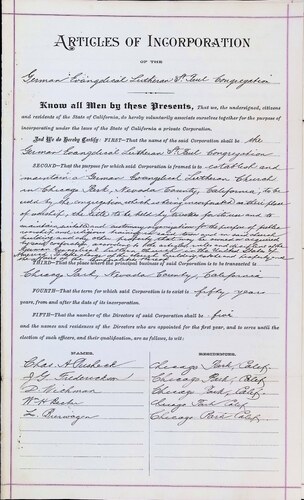 ARTICLES OF INCORPORATION
OF THE
German Evangelical Lutheran St Paul Congregation
Know all Men by these Presents, That we, the undersigned, citizens
and residents of the State of California, do hereby voluntarily associate ourselves together for the purpose of
incorporating under the laws of the State of California a private Corporation.
And We do Hereby Certify: FIRST—That the name of the said Corporation shall be the
German Evangelical Lutheran St Paul Congregation
SECOND—That the purpose for which said Corporation is formed is to establish and
maintain a German Evangelical Lutheran Church
in Chicago Park, Nevada County, California, to be
used by the congregation which is being incorporated as their place
of worship, the title to be held by trustees for them and to
THIRD—That the place where the principal business of said Corporation is to be transacted is
Chicago Park, Nevada County, California
FOURTH—That the term for which said Corporation is to exist is fifty years
years, from and after the date of its incorporation.
FIFTH—That the number of the Directors of said Corporation shall be five
and the names and residences of the Directors who are appointed for the first year, and to serve until the
election of such officers, and their qualification, are as follows, is wit:
NAMES. RESIDENCES.
Chas. A. Chicago Park, Calif.
J. G. Chicago Park, Calif.
D. Chicago Park, Calif.
Wm H. Chicago Park Calif.
L. Chicago Park Calif.